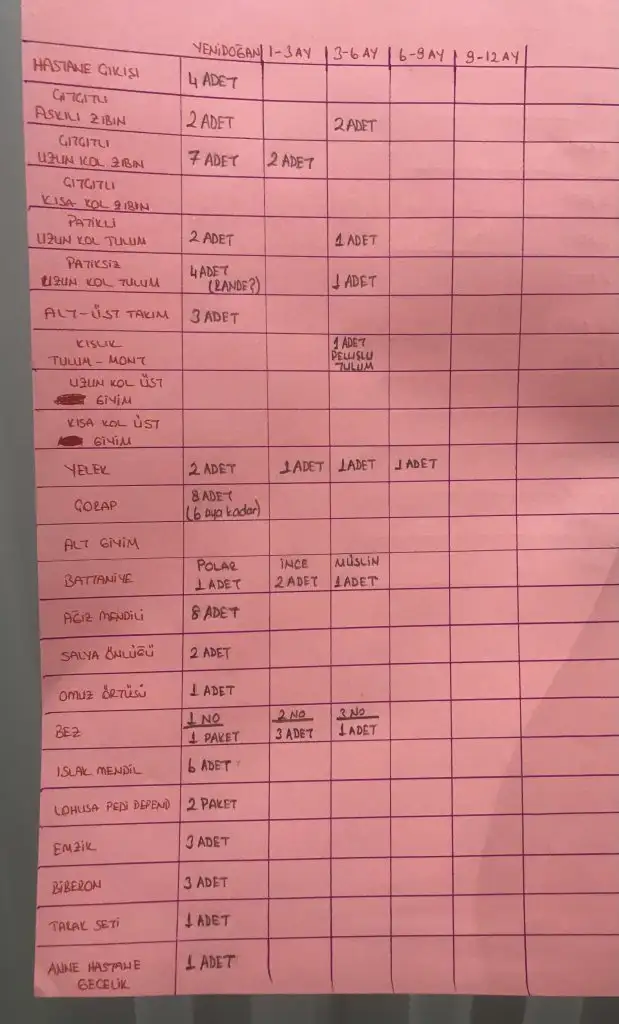 YENİDOĞAN 1-3 AY 3-6 AY 6-9 AY 9-12 AY
HASTANE ÇIKIŞI 4 ADET
ÇITÇITLI
ASKILI ZIBIN 2 ADET 2 ADET
ÇITÇITLI
UZUN KOL ZIBIN 7 ADET 2 ADET
ÇITÇITLI
KISA KOL ZIBIN
PATİKLİ
UZUN KOL TULUM 2 ADET 1 ADET
PATİKSİZ
UZUN KOL TULUM 4 ADET 1 ADET
(2ANDE?)
ALT-ÜST TAKIM 3 ADET
KIŞLIK
TULUM - MONT 1 ADET
PELUŞLU
TULUM
UZUN KOL ÜST
GİYİM
KISA KOL ÜST
GİYİM
YELEK 2 ADET 1 ADET 1 ADET 1 ADET
ÇORAP 8 ADET
(6 aya kadar)
ALT GİYİM
BATTANİYE POLAR İNCE MÜSLİN
1 ADET 2 ADET 1 ADET
AĞIZ MENDİLİ 8 ADET
SALYA ÖNLÜĞÜ 2 ADET
OMUZ ÖRTÜSÜ 1 ADET
BEZ 1 NO 2 NO 3 NO
1 PAKET 3 ADET 1 ADET
ISLAK MENDİL 6 ADET
LOHUSA PEDİ DEPEND 2 PAKET
EMZİK 3 ADET
BİBERON 3 ADET
TARAK SETİ 1 ADET
ANNE HASTANE
GECELİK 1 ADET